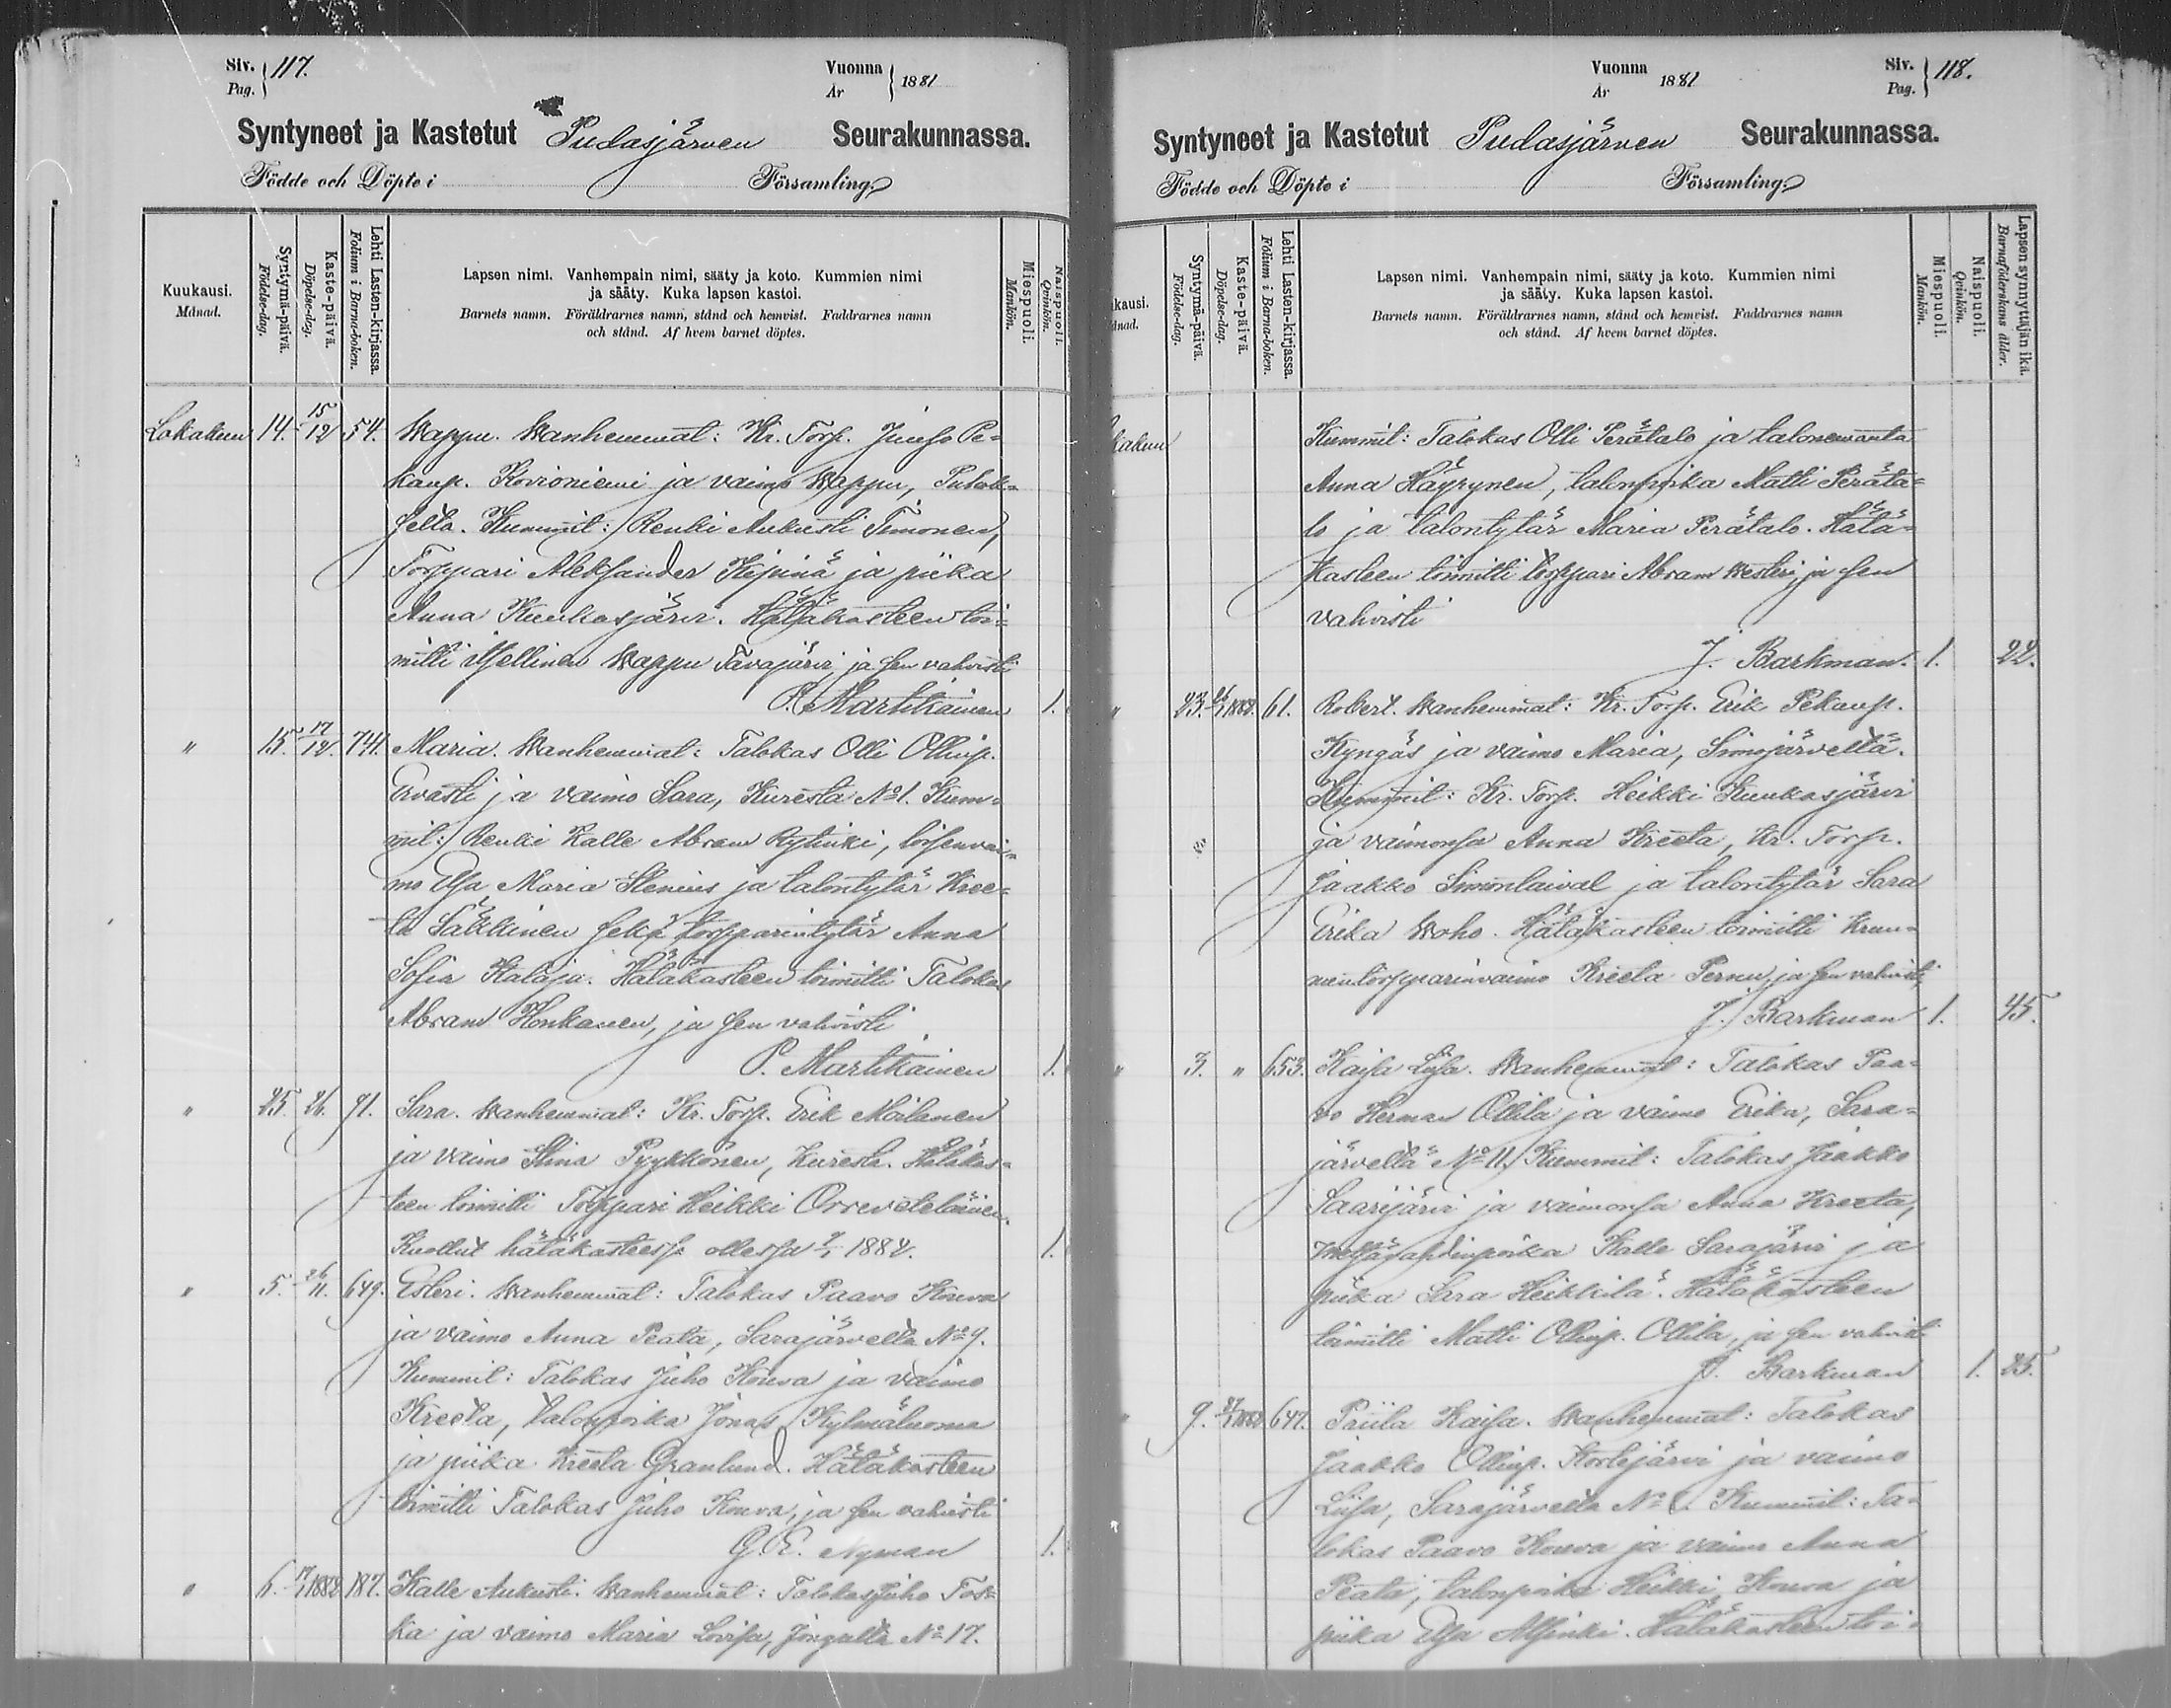 Siv. Pag. 117.
Vuonna År 1881
Syntyneet ja Kastetut Pudasjärven Seurakunnassa.
Födde och Döpte i Församling.
Kuukausi. Månad.
Syntymä-päivä. Födelse-dag.
Kaste-päivä. Döpelse-dag.
Lehti Lasten-kirjassa. Folium i Barna-boken.
Lapsen nimi. Vanhempain nimi, sääty ja koto. Kummien nimi
ja sääty. Kuka lapsen kastoi.
Barnets namn. Föräldrarnes namn, stånd och hemvist. Faddrarnes namn
och stånd. Af hvem barnet döptes.
Miespuoli. Mankön.
Naispuoli. Qvinkön.
Lokakuu 14. 15/12 54. Wappu. Wanhemmat: Kr. Torp. Juho Pe=
kanp. Kovioniemi ja vaimo Wappu,
Kummit: Renki Aukusti Timonen,
Torppari Aleksander Hepinä ja piika
Anna Kuukasjärvi. Hätäkasteen toi=
mitti itsellinen Wappu Tavajärvi ja sen vahvisti
P. Martikainen 1.
" 15. 17/12. 741. Maria. Wanhemmat: Talokas Olli Ollinp.
Ervasti ja vaimo Sara, Kuresta No 1. Kum=
mit: Renki Kalle Abram Rytinki, loisenvai=
mo Elsa Maria Stenius ja talontytär Kree=
ta Särkkinen sekä torpparintytär Anna
Sofia Kataja. Hätäkasteen toimitti Talokas
Abram Honkanen, ja sen vahvisti
P. Martikainen 1.
" 25. 26. 71. Sara. Wanhemmat: Kr. Torp. Erik Moilanen
ja vaimo Stina Pyykkönen, Kuresta. Hätäkas=
teen toimitti Torppari Heikki Orreveteläinen.
Kuollut hätäkasteessa ollessa 1882. 1.
" 5. 26/11. 649. Esteri. Wanhemmat: Talokas Paavo Kouva
ja vaimo Anna Peata, Sarajärveltä No 9.
Kummit: Talokas Juho Kouva ja vaimo
Kreeta, talonpoika Jonas Kylmäluoma
ja piika Kreeta Granlund. Hätäkasteen
toimitti Talokas Juho Kouva, ja sen vahvisti
G. E. Nyman 1.
" 6. 1882 187. Kalle Aukusti. Wanhemmat: Talokas Juho Tos=
ka ja vaimo Maria Lovisa, Jongulta No 17.
Vuonna År 1881
Siv. Pag. 118.
Syntyneet ja Kastetut Pudasjärven Seurakunnassa.
Födde och Döpte i Församling.
kausi. ånad.
Syntymä-päivä. Födelse-dag.
Kaste-päivä. Döpelse-dag.
Lehti Lasten-kirjassa. Folium i Barna-boken.
Lapsen nimi. Vanhempain nimi, sääty ja koto. Kummien nimi
ja sääty. Kuka lapsen kastoi.
Barnets namn. Föräldrarnes namn, stånd och hemvist. Faddrarnes namn
och stånd. Af hvem barnet döptes.
Miespuoli. Mankön.
Naispuoli. Qvinkön.
Lapsen synnyttäjän ikä. Barnaföderskans ålder.
kakuu Kummit: Talokas Olli Perätalo ja talonemäntä
Anna Häyrynen, talonpoika Matti Peräta=
lo ja talontytär Maria Perätalo. Hätä=
kasteen toimitti torppari Abram Westeri, ja sen
vahvisti
J. Barkman. 1. 22.
" 23. 1882. 61. Robert. Wanhemmat: Kr. Torp. Erik Pekanp.
Kyngäs ja vaimo Maria, Simojärveltä.
Kummit: Kr. Torp. Heikki Kuukasjärvi
ja vaimonsa Anna Kreeta, Kr. Torp.
Jaakko Simontaival ja talontytär Sara
Erika Woho. Hätäkasteen toimitti Kruu=
nuntorpparinvaimo Kreeta Pernu, ja sen vahvisti
J. Barkman 1. 45.
" 3. " 653. Kaisa Liisa. Wanhemmat: Talokas Paa=
vo Herman Ollila ja vaimo Erika, Sara=
järveltä No 11. Kummit: Talokas Jaakko
Saarijärvi ja vaimonsa Anna Kreeta,
Kalle Sarajärvi ja
piika Sara Heikkilä. Hätäkasteen
toimitti Matti Ollinp. Ollila, ja sen vahvisti
J. Barkman 1. 25.
" 9. 1882 647. Priita Kaisa. Wanhemmat: Talokas
Jaakko Ollinp. Kortejärvi ja vaimo
Liisa, Sarajärveltä No Kummit: Ta=
lokas Paavo Kouva ja vaimo Anna
Peata, talonpoika Heikki Kouva ja
piika Elsa Hätäkasteen toi=